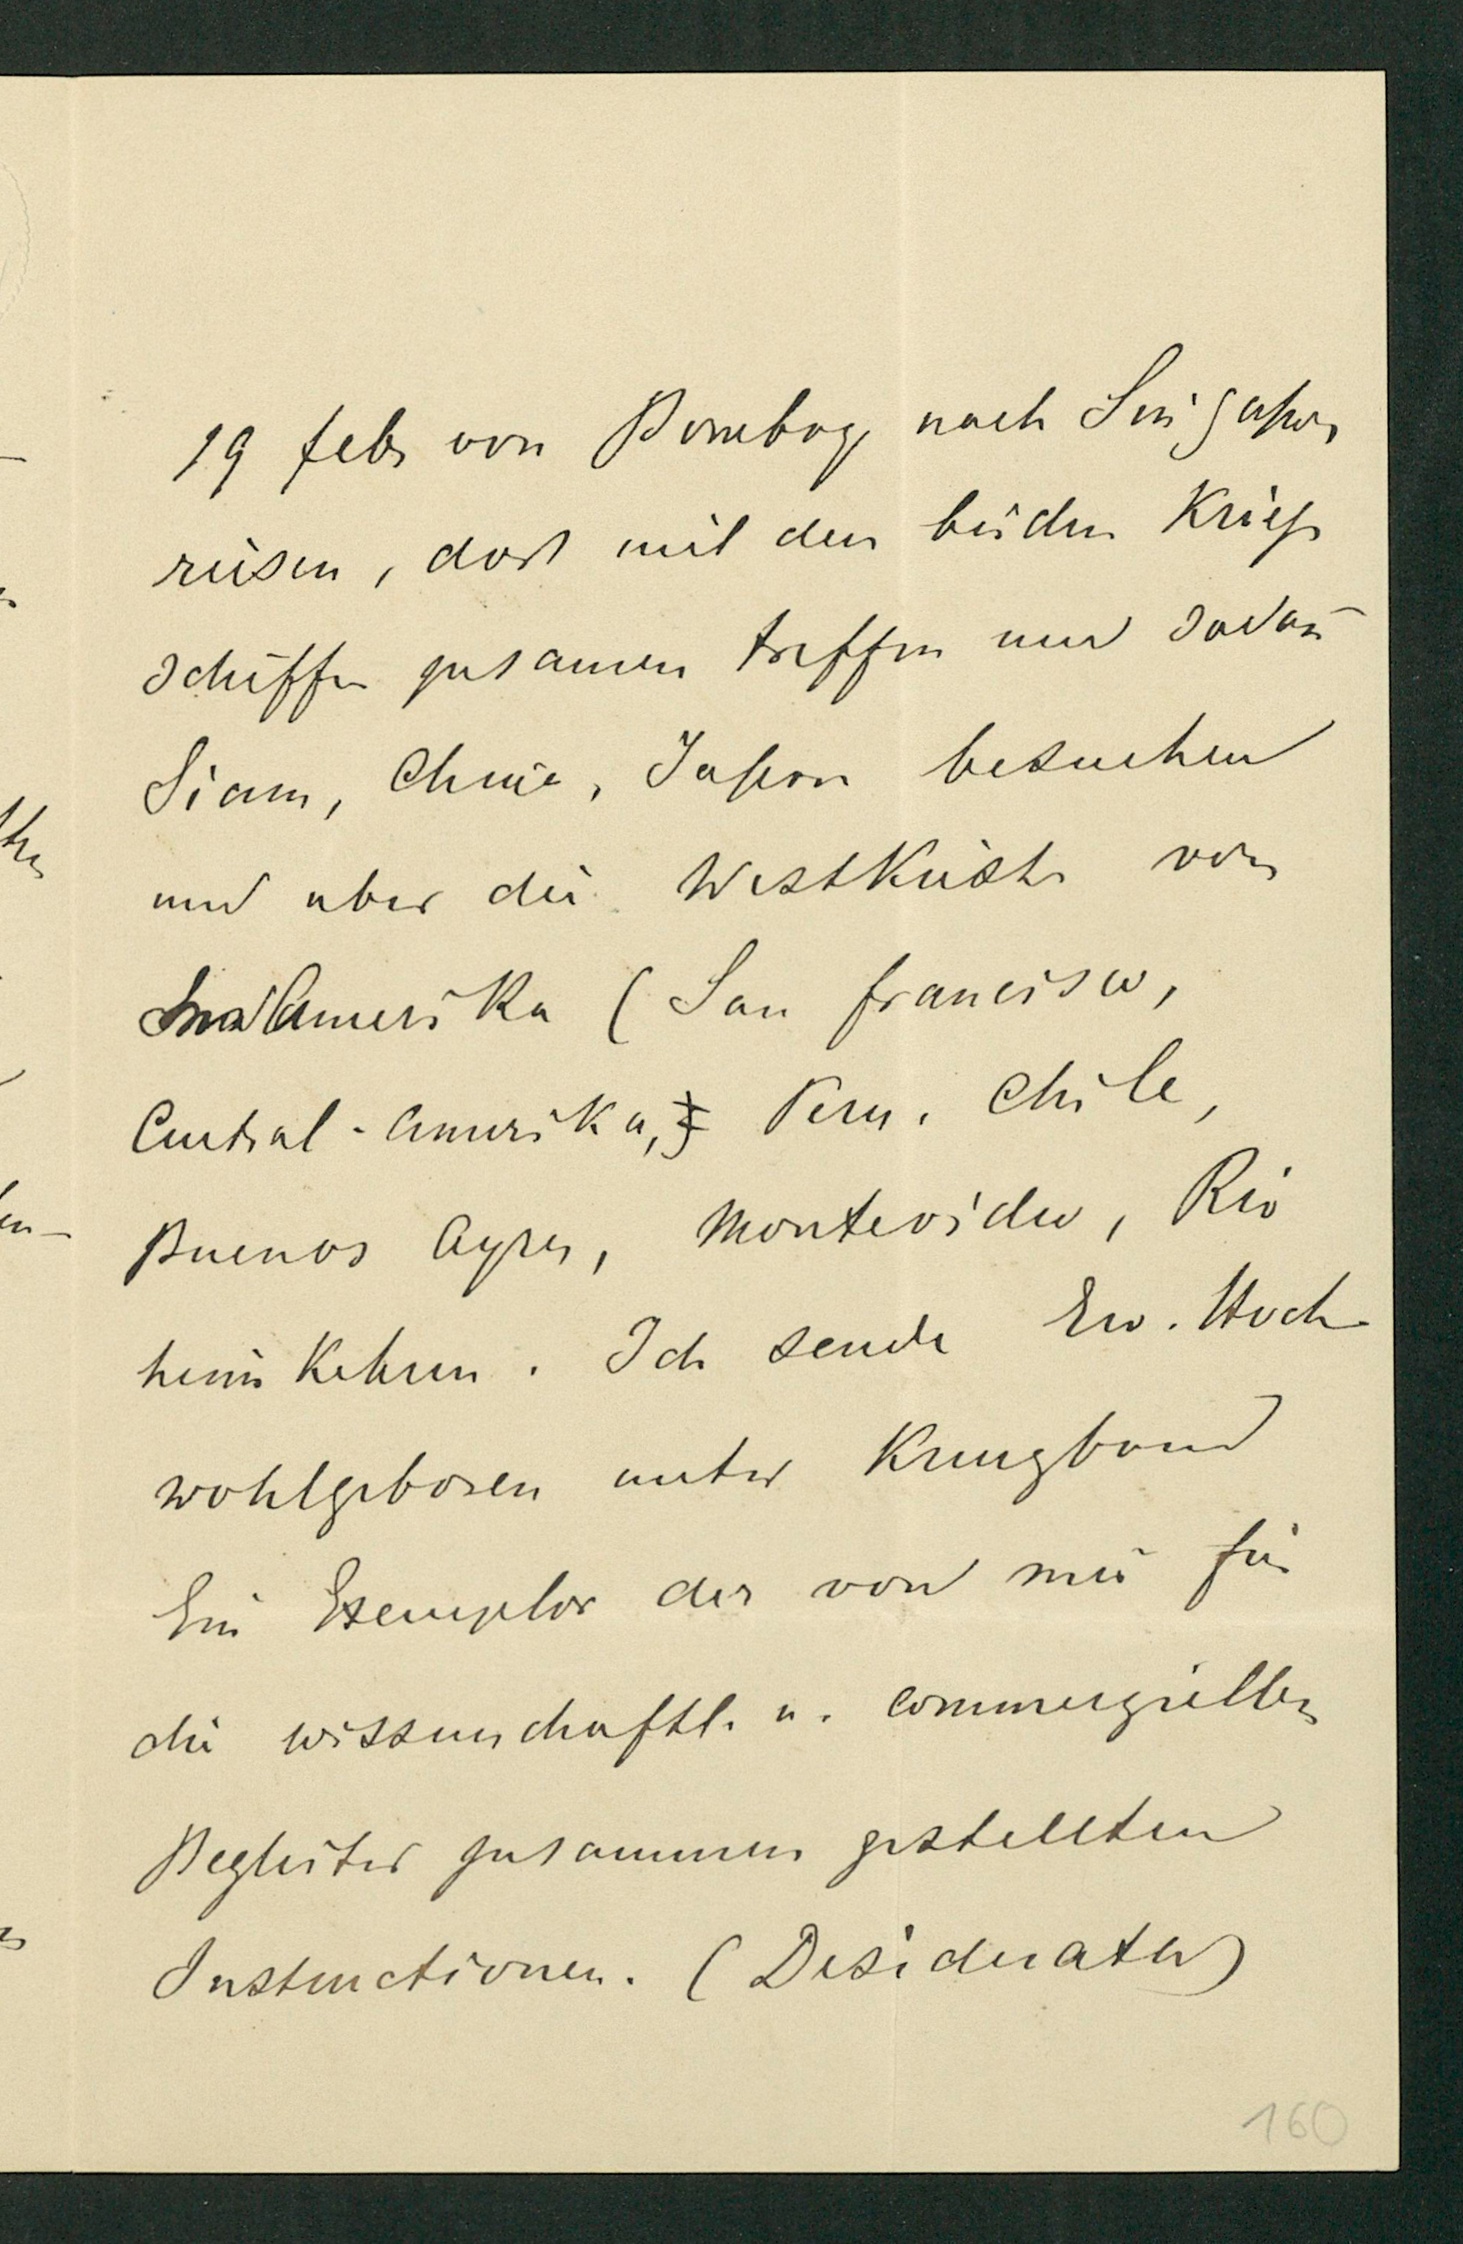 19 febr von Bombay nach Singapor
reisen, dort mit den beiden Kriegs
schiffen zusamen treffen und sodan̄
Siam, China, Japan besuchen
und uber die Westküste von
Amerika (San francisco,
Central-Amerika, Peru, Chile,
Buenos Ayres, Montevideo, Rio
heim kehren. Ich sende Ew. Hoch-
wohlgeboren unter Kreuzband
Ein Exemplar der von mir für
die wissenschaftl. u. commerziellen
Begleiter zusammen gestellten
Instructionen. (Desiderata)
160